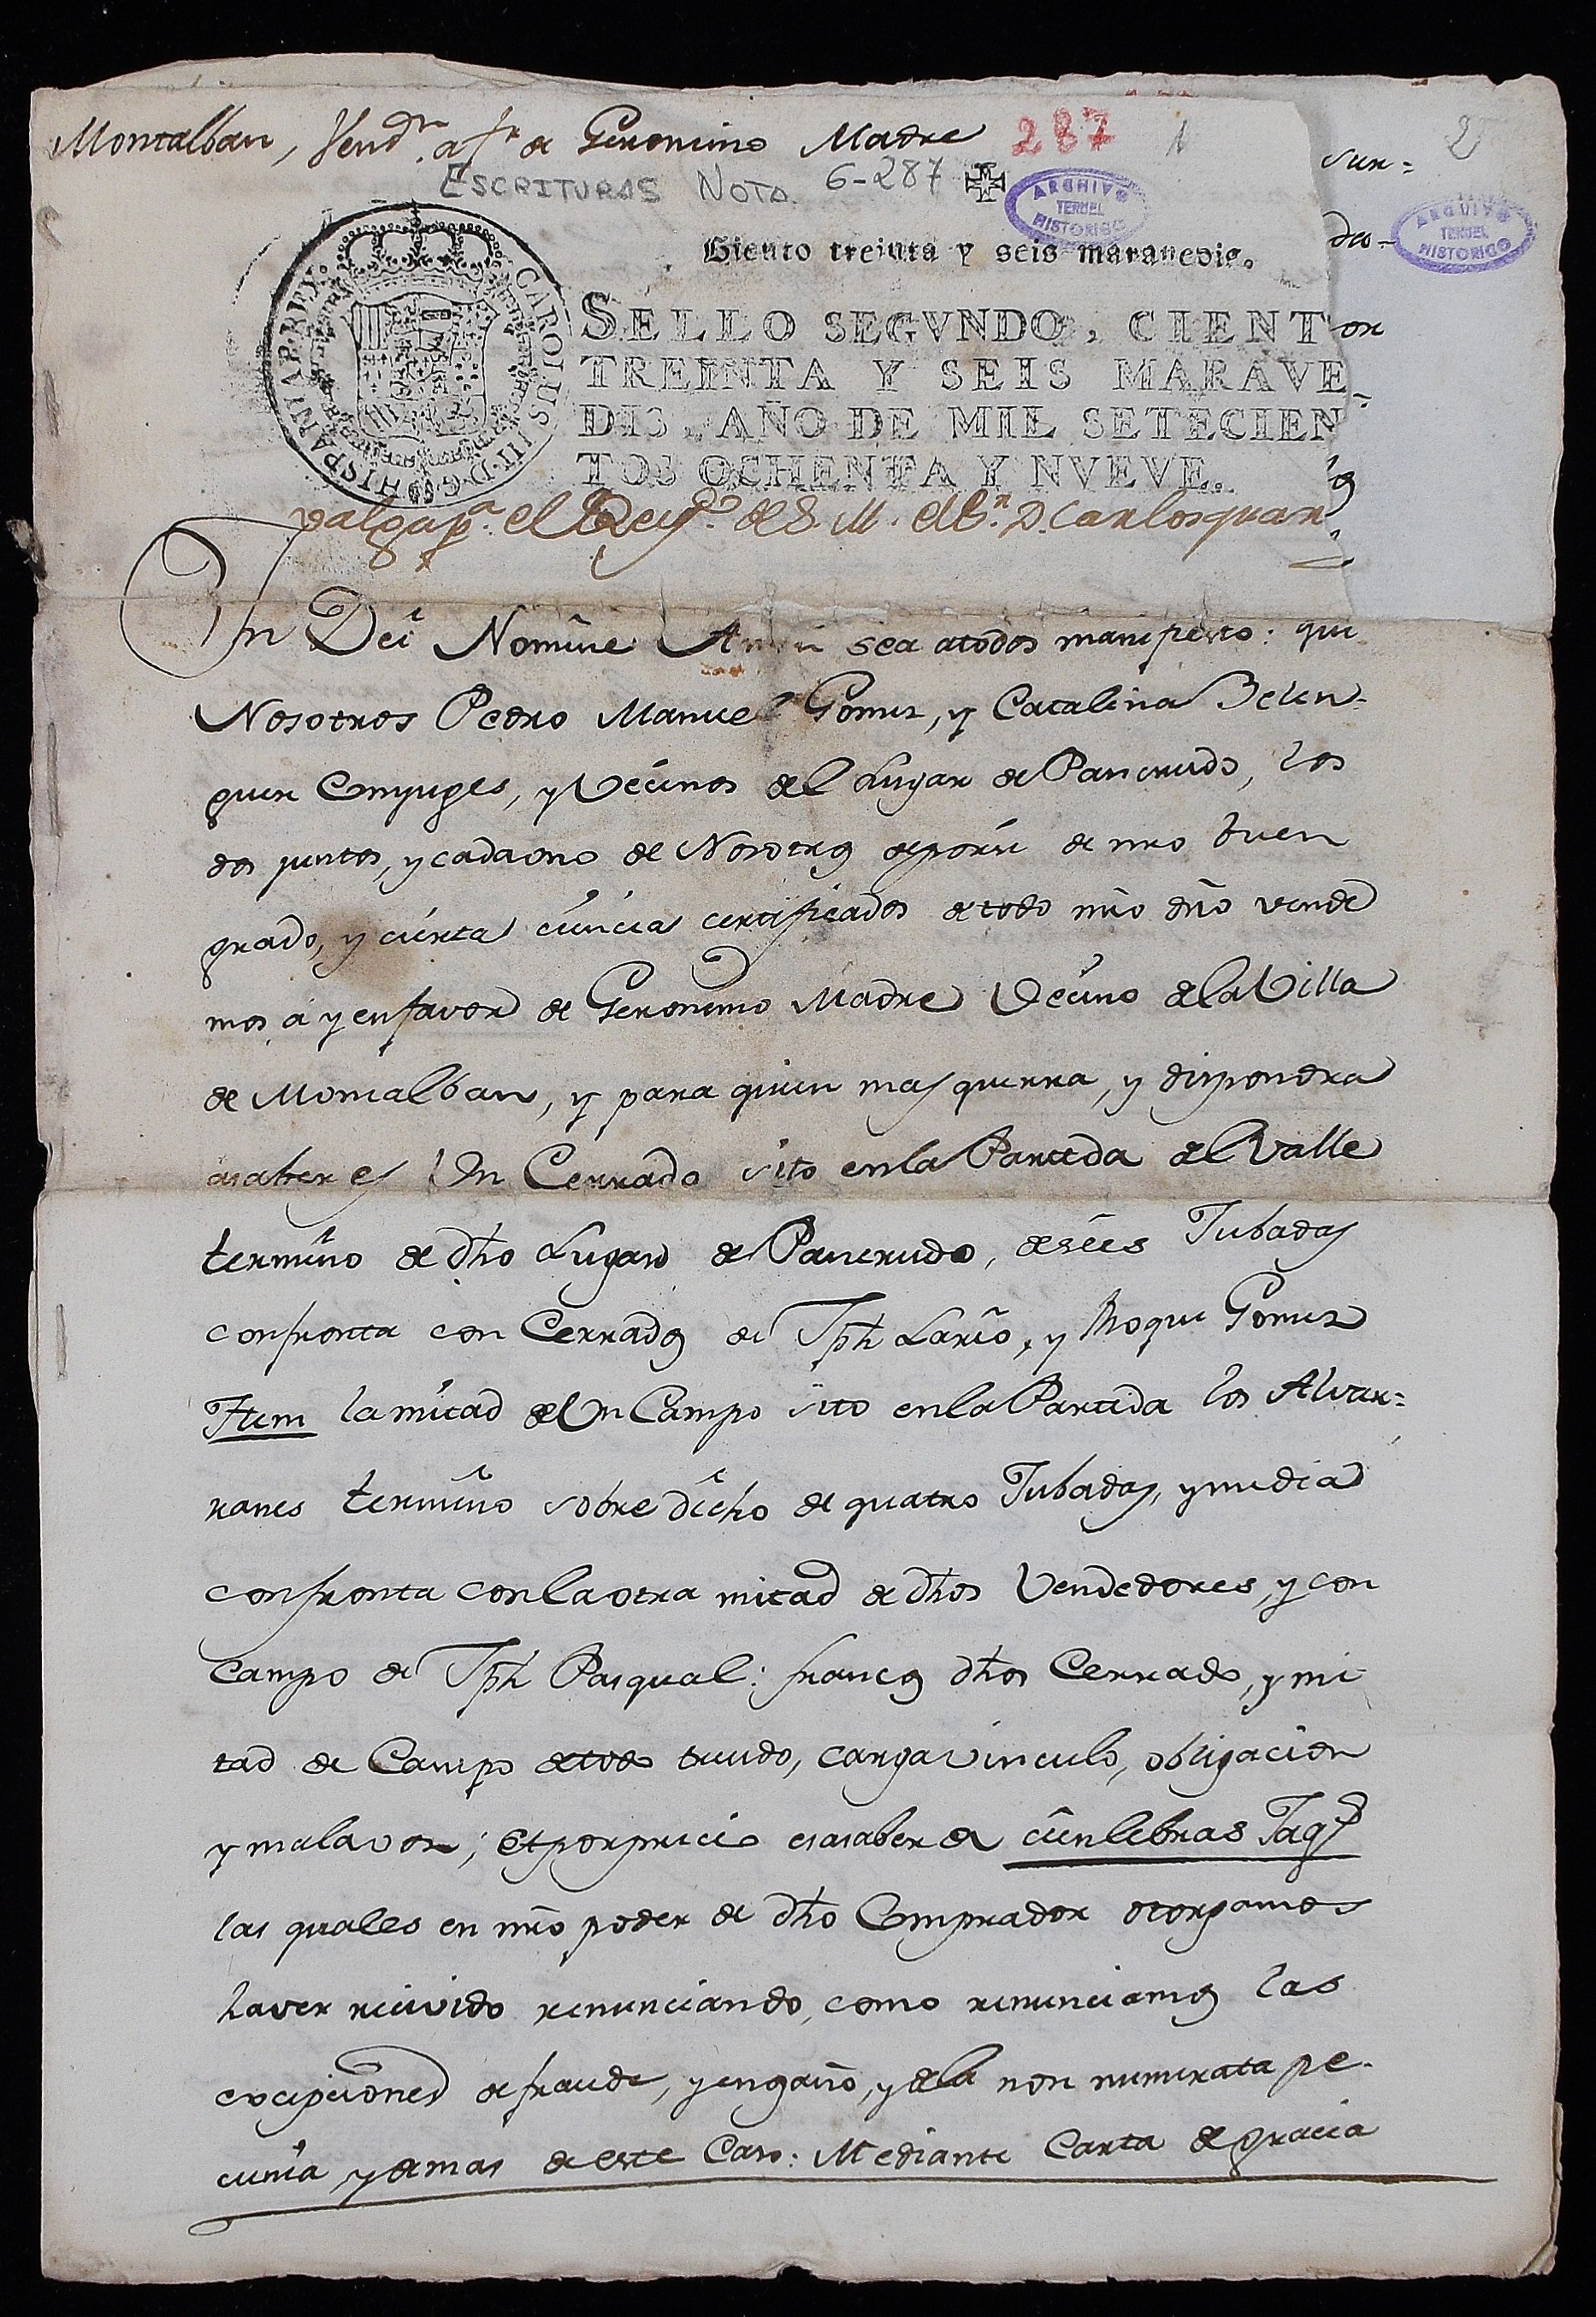 Montalban, Vend.n a f.r de Geronimo Madre 287 1
ESCRITURAS NOTA. 6-287
ARCHIVO TERUEL HISTORICO
Ciento treinta y seis maravedis.
HISPANIAR.REX. CAROLUS III.D.G.
SELLO SEGVNDO, CIENT
TREINTA Y SEIS MARAVE
DIS, AÑO DE MIL SETECIEN
TOS OCHENTA Y NVEVE.
valga p.a el Rey.do de S. M. el S.r D. Carlos quar
2
sur=
do=
ARCHIVO TERUEL HISTORICO
or
In Dei Nomine Amen sea atodos manifiesto: que
Nosotros Pedro Manuel Gomez, y Catalina Belen-
guer Conyuges, y Vecinos del Lugar de Pancrudo, los
dos juntos, y cadauno de Nosotros deporsi de nro buen
grado, y cierta ciencia certificados detodo nro dro vende
mos á y enfavor de Geronimo Madre Vecino delaVilla
de Montalban, y para quien mas querra, y dispondra
asaber es Un Cerrado sito enla Partida del Valle
termino de dho Lugar de Pancrudo, deseis Jubadas
confronta con Cerrados de Jph Lario, y Roque Gomez
Item lamitad deUn Campo sito enla Partida los Alvar=
ranes termino sobre dicho de quatro Jubadas, ymedia
confronta conlaotra mitad de dhos Vendedores, y con
Campo de Jph Pasqual: francos dhos Cerrado, y mi
tad de Campo detodo treudo, carga vinculo, obligacion
y malavoz; et porprecio esasaber de cien libras Jaq.s
las quales en nro poder de dho Comprador otorgamos
haver recivido renunciando, como renunciamos las
excepciones defraude, yengaño, ydela non numerata pe-
cunia ydemas deeste Caso: Mediante Carta degracia